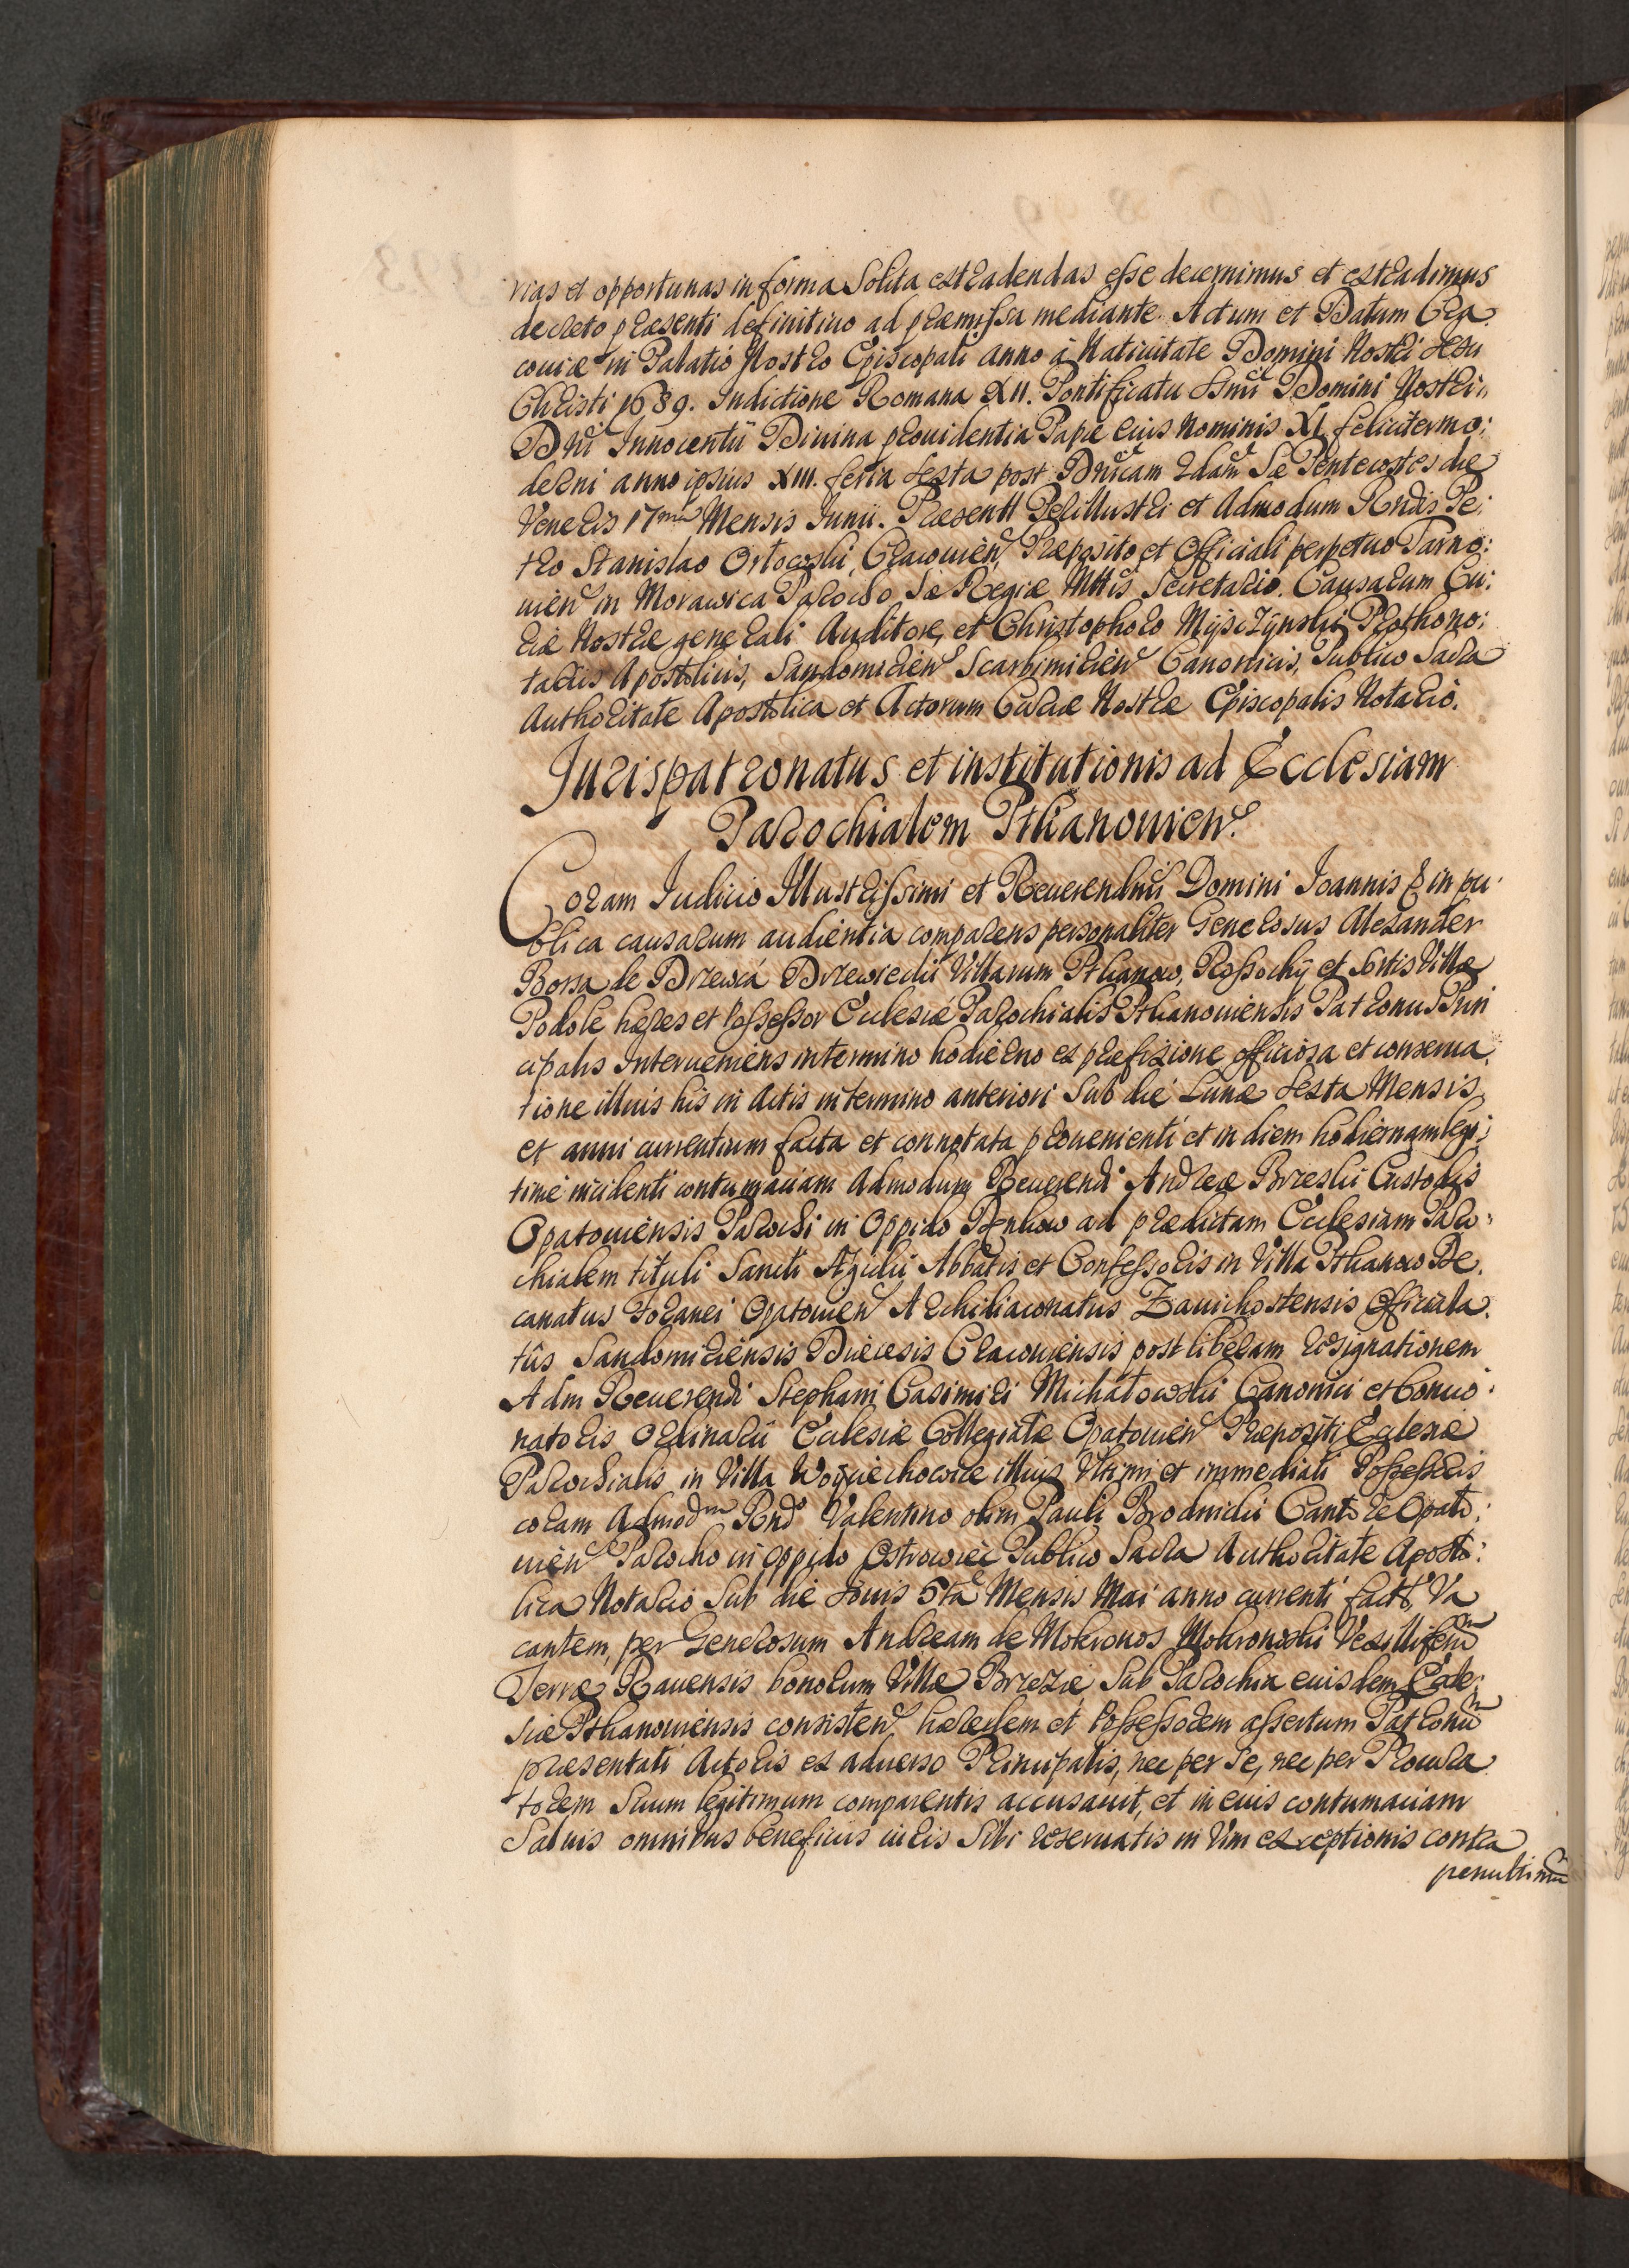 rias et opportunas in forma Solita extradendas esse decernimus et extradimus
decreto præsenti definitiuo ad præmissa mediante. Actum et Datum Cra
couiæ in Palatio Nostro Episcopali anno à Natiuitate Domini Nostri Jesu
Christi 1689. Indictione Romana XII. Pontificatu SSmi Domini Nostri
Dni Innocentii Diuina prouidentia Papæ eius Nominis XI feliciter mo:
derni anno ipsius XIII. feria Sexta post Dnicam 2dam Sæ Pentecostes die
Veneris 17ma Mensis Iunii. Præsentt Perillustri et Admodum Rndis Pe:
tro Stanislao Orłowski, Cracouien, Præposito et Officiali perpetuo Tarno:
uien in Morawica Parocho Sæ Regiæ Mttis Secretario. Causarum Cu:
riæ Nostræ generali Auditore, et Christophoro Myjsczynski Prothono:
tariis Apostolicis, Sandomirien Scarbimirien Canonicis, Publico Sacra
Authoritate Apostolica et Actorum Curiæ Nostræ Episcopalis Notario.
Jurispatronatus et institutionis ad Ecclesiam
Parochialem Ptkanouien.
Coram Iudicio Illustrissimi et Reuerendmi Domini Ioannis & in pu
blica causarum audientia comparens personaliter Generosus Alexander
Borsa de Drzewicá Drzewiecki Villarum Ptkanow, Rossochÿ et Sortis Villæ
Podole hæres et Possessor Ecclesiæ Parochialis Ptkanouiensis Patronus Prin
cipalis Interueniens in termino hodierno ex præfixione officiosa et conserua
tione illius his in Actis in termino anteriori Sub die Lunæ Sexta Mensis
et anni currentium facta et connotata prouenienti et in diem hodiernam legi:
timè incidenti contumaciam Admodum Reuerendi Andreæ Brzeski Custodis
Opatouiensis Parochi in Oppido Denkow ad prædictam Ecclesiam Paro:
chialem tituli Sancti Ægidii Abbatis et Confessoris in Villa Ptkanow De
canatus Foranei Opatouien Archidiaconatus Zauichostensis Officiala
tûs Sandomiriensis Diæcesis Cracouiensis post liberam resignationem
Adm Reuerendi Stephani Casimiri Michałowski Canonici et Concio:
natoris Ordinarii Ecclesiæ Collegiatæ Opatouien Præpositi Ecclesiæ
Parochialis in Villa Woyciechowice illius Vltimi et immediati Possessoris
coram Admodm Rndo Valentino olim Pauli Brodnicki Cantore Opato:
uien Parocho in oppido Ostrowiec Publico Sacra Authoritate Aposto:
lica Notario Sub die Iouis 5ta Mensis Mai anno currenti factt, Va
cantem, per Generosum Andream de Mokronos Mokronoski Vexilliferum
Terræ Rauensis bonorum Villæ Brzezie Sub Parochia eiusdem Eccle:
siæ Ptkanouiensis consisten hæredem et Possessorem assertum Patronum
præsentati Actoris ex aduerso Principalis, nec per se, nec per Procura
torem Suum legitimum comparentis accusauit, et in eius contumaciam
Saluis omnibus beneficiis iuris Sibi reseruatis in Vim exceptionis contra
penultimum